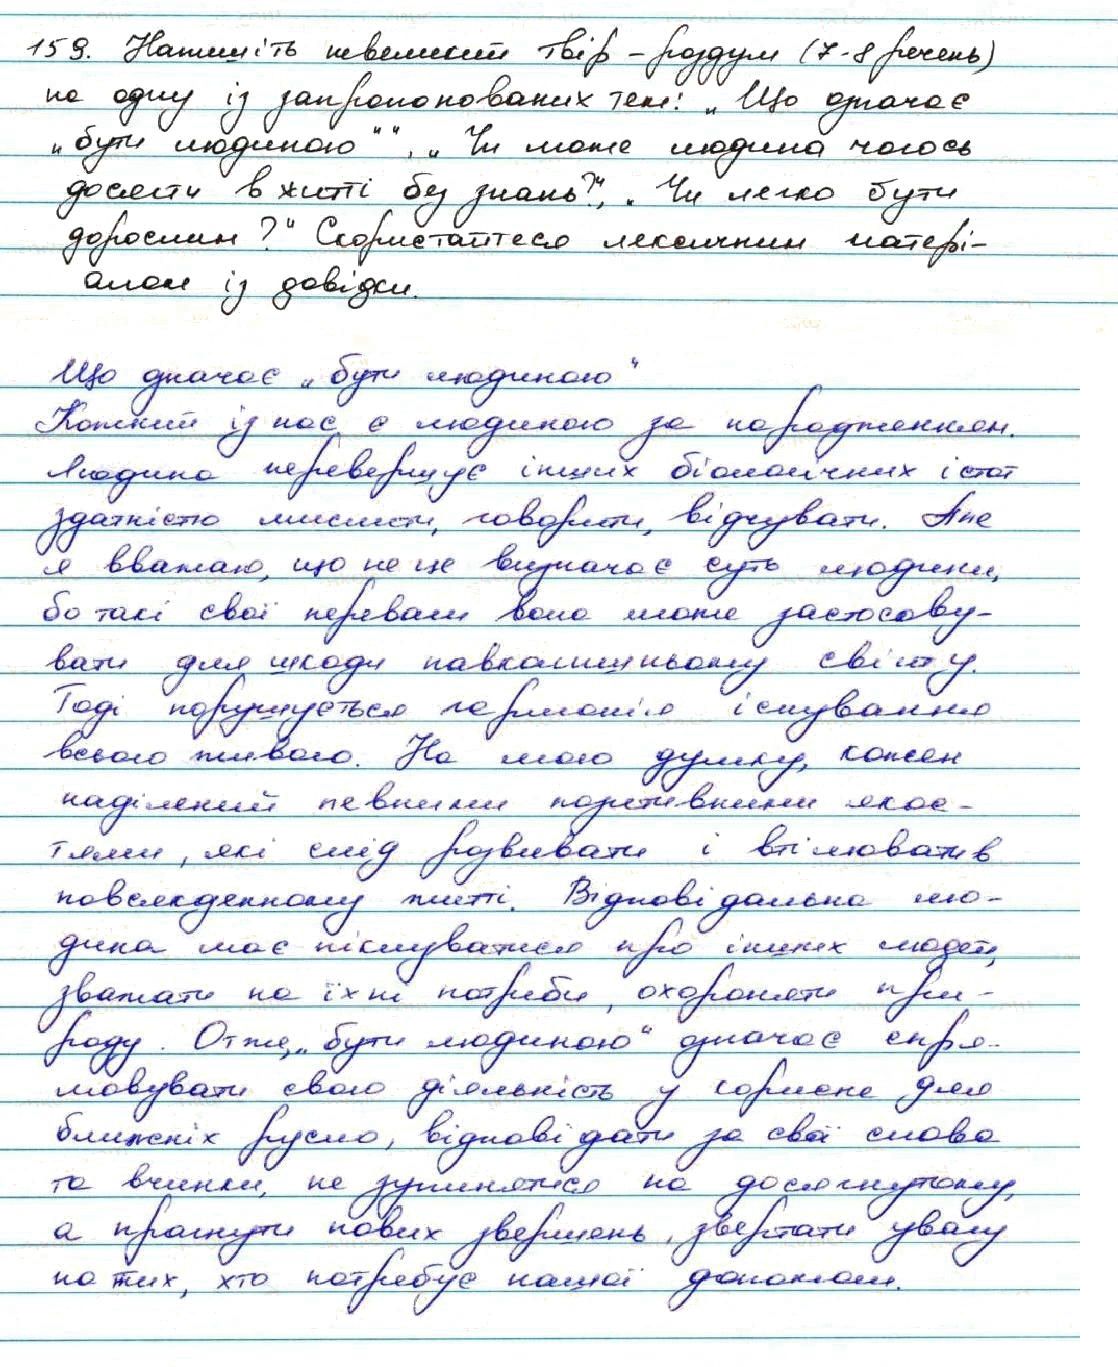 159. Напишіть невеликий твір-роздум (7-8 речень)
на одну із запропонованих тем: „Що означає
„бути людиною"", „Чи може людина чогось
досягти в житті без знань?", „Чи легко бути
дорослим?" Скористайтеся лексичним матері-
алом із довідки.
Що означає „бути людиною"
Кожний із нас є людиною за народженням.
Людина перевершує інших біологічних істот
здатністю мислити, говорити, відчувати. Але
я вважаю, що не це визначає суть людини,
бо такі свої переваги вона може застосову-
вати для шкоди навколишньому світу.
Тоді порушується гармонія існування
всього живого. На мою думку, кожен
наділений певними позитивними якос-
тями, які слід розвивати і втілювати в
повсякденному житті. Відповідальна лю-
дина має піклуватися про інших людей,
зважати на їхні потреби, охороняти при-
роду. Отже, „бути людиною" означає спря-
мовувати свою діяльність у корисне для
ближніх русло, відповідати за свої слова
та вчинки, не зупинятися на досягнутому,
а прагнути нових звершень, звертати увагу
на тих, хто потребує нашої допомоги.